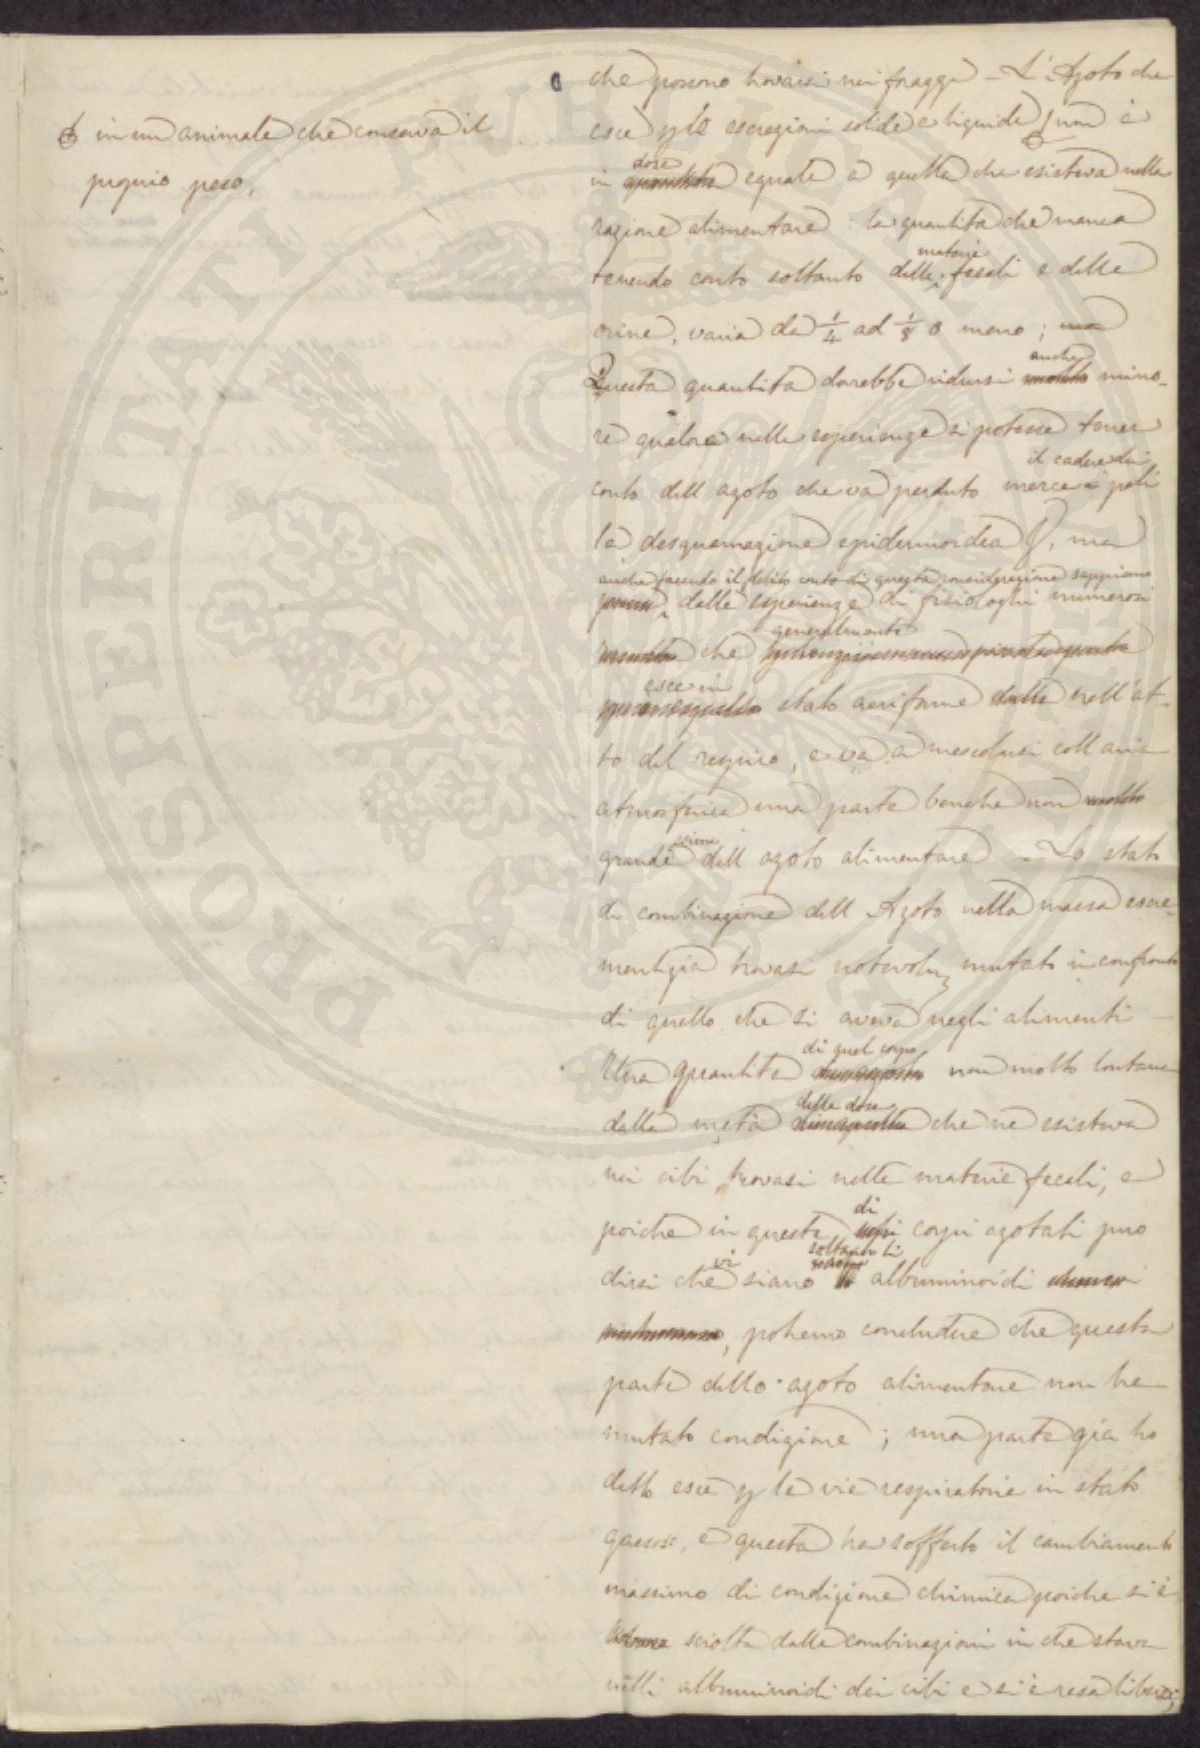 che possono trovarsi nei foraggi – L'Azoto che
esce p le escrezioni solide e liquide non è
in un animale che conserva il
proprio peso,
dose
in quantità eguale a quella che esisteva nella
razione alimentare : la quantità che manca
materie
tenendo conto soltanto delle fecali e delle
orine, varia da 1/4 ad 1/8 o meno ; ma
anche
Questa quantità dovrebbe ridursi molto mino-
re qualora nelle esperienze si potesse tener
il cadere dei
conto dell azoto che va perduto mercè i peli
la desquamazione epidermoidea , ma
anche facendo il debito conto di questa considerazione sappiamo
dalle esperienze di fisiologhi numerosi
generalmente
che
esce in
stato aeriforme nell'at-
to del respiro, e va a mescolarsi coll aria
atmosferica una parte benchè non molto
grande dell azoto alimentare – Lo stato
di combinazione dell Azoto nella massa escre-
mentizia trovasi notevolm mutato in confronto
di quello che si aveva negli alimenti –
di quel corpo
Una quantità non molto lontana
della dose
dalla metà che ne esisteva
nei cibi, trovasi nelle materie fecali, e
di
poichè in queste corpi azotati può
vi soltanto li
dirsi che siano albuminoidi
, potremo concludere che questa
parte dello azoto alimentare non ha
mutato condizione ; una parte già ho
detto esce p le vie respiratorie in stato
gassoso, e questa ha sofferto il cambiamento
massimo di condizione chimica poichè si è
sciolta dalle combinazioni in che stava
nelli albuminoidi dei cibi e si è resa libera;
PROSPERITATI PVBLICAE